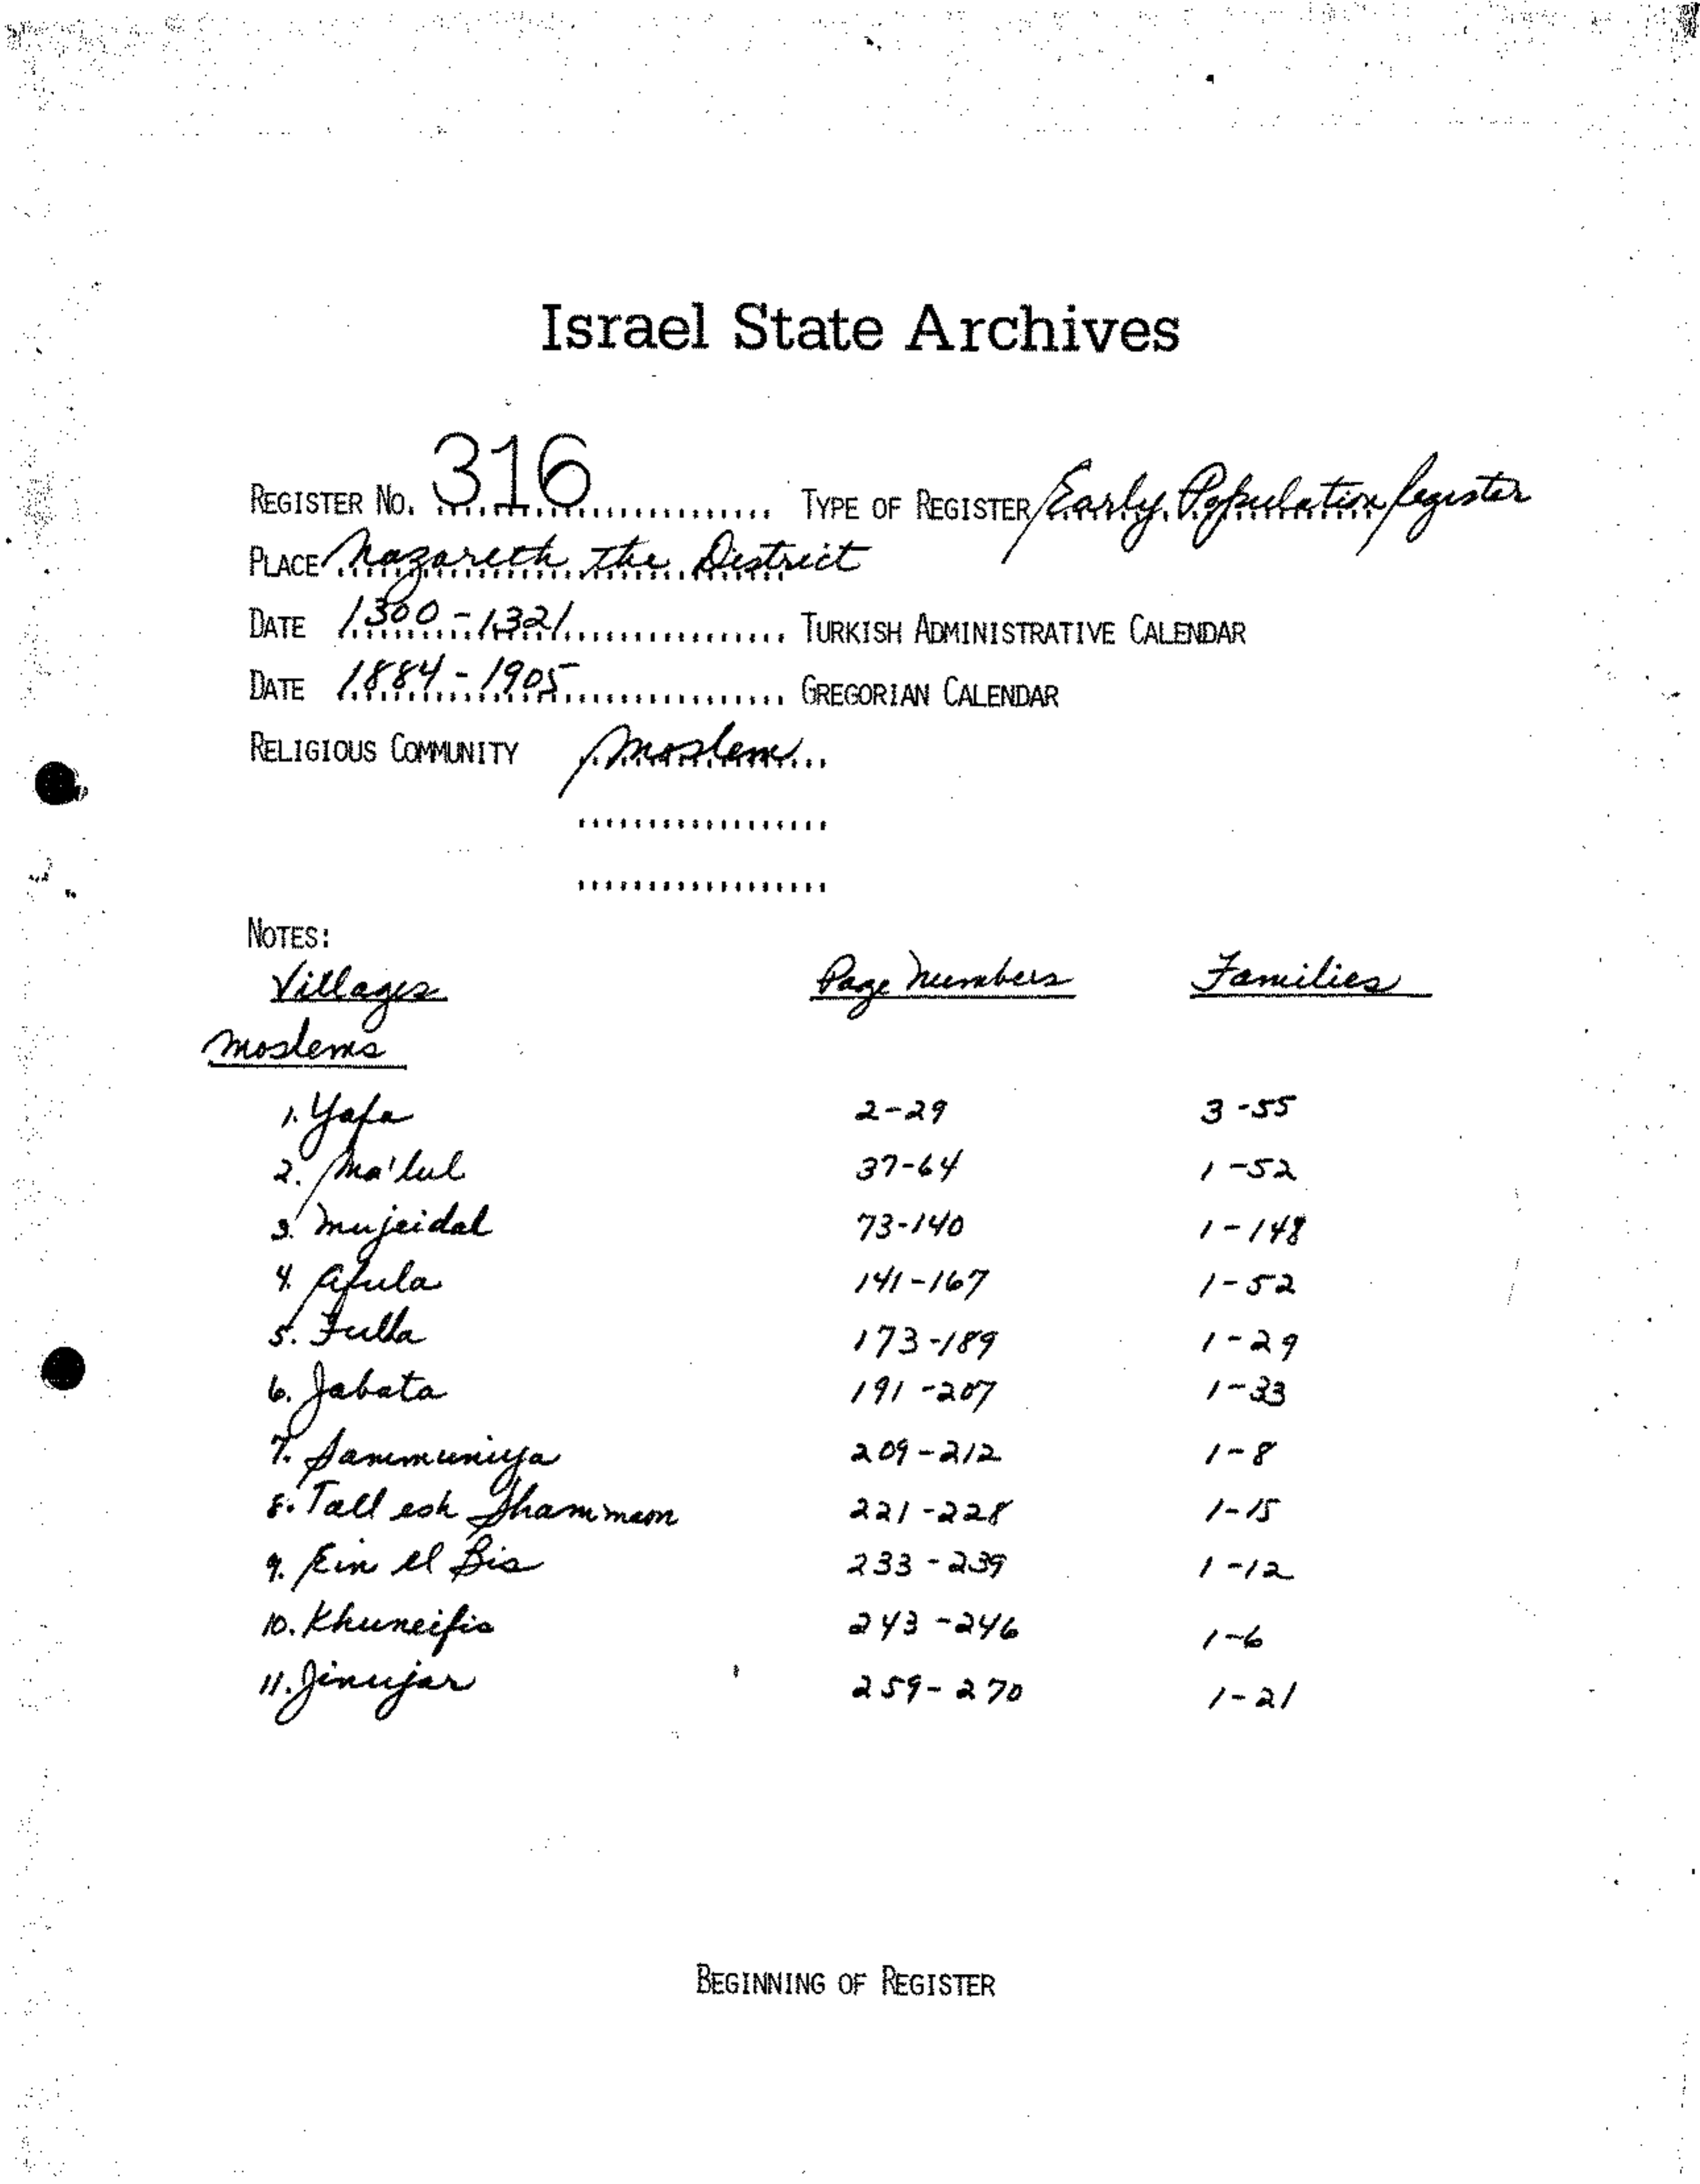 Israel State Archives
REGISTER NO. 316 TYPE OF REGISTER Early Population Register
PLACE Nazareth the District
DATE 1300-1321 TURKISH ADMINISTRATIVE CALENDAR
DATE 1884-1905 GREGORIAN CALENDAR
RELIGIOUS COMMUNITY Moslem
NOTES:
Villages Page Numbers Families
Moslems
1. Yafa 2-29 3-55
2. Ma'lul 37-64 1-52
3. Mujeidal 73-140 1-148
4. Afula 141-167 1-52
5. Fulla 173-189 1-29
6. Jabata 191-207 1-33
7. Sammuniya 209-212 1-8
8. Tall esh Shammam 221-228 1-15
9. Ein el Bis 233-239 1-12
10. Khuneifis 243-246 1-6
11. Jinujar 259-270 1-21
BEGINNING OF REGISTER